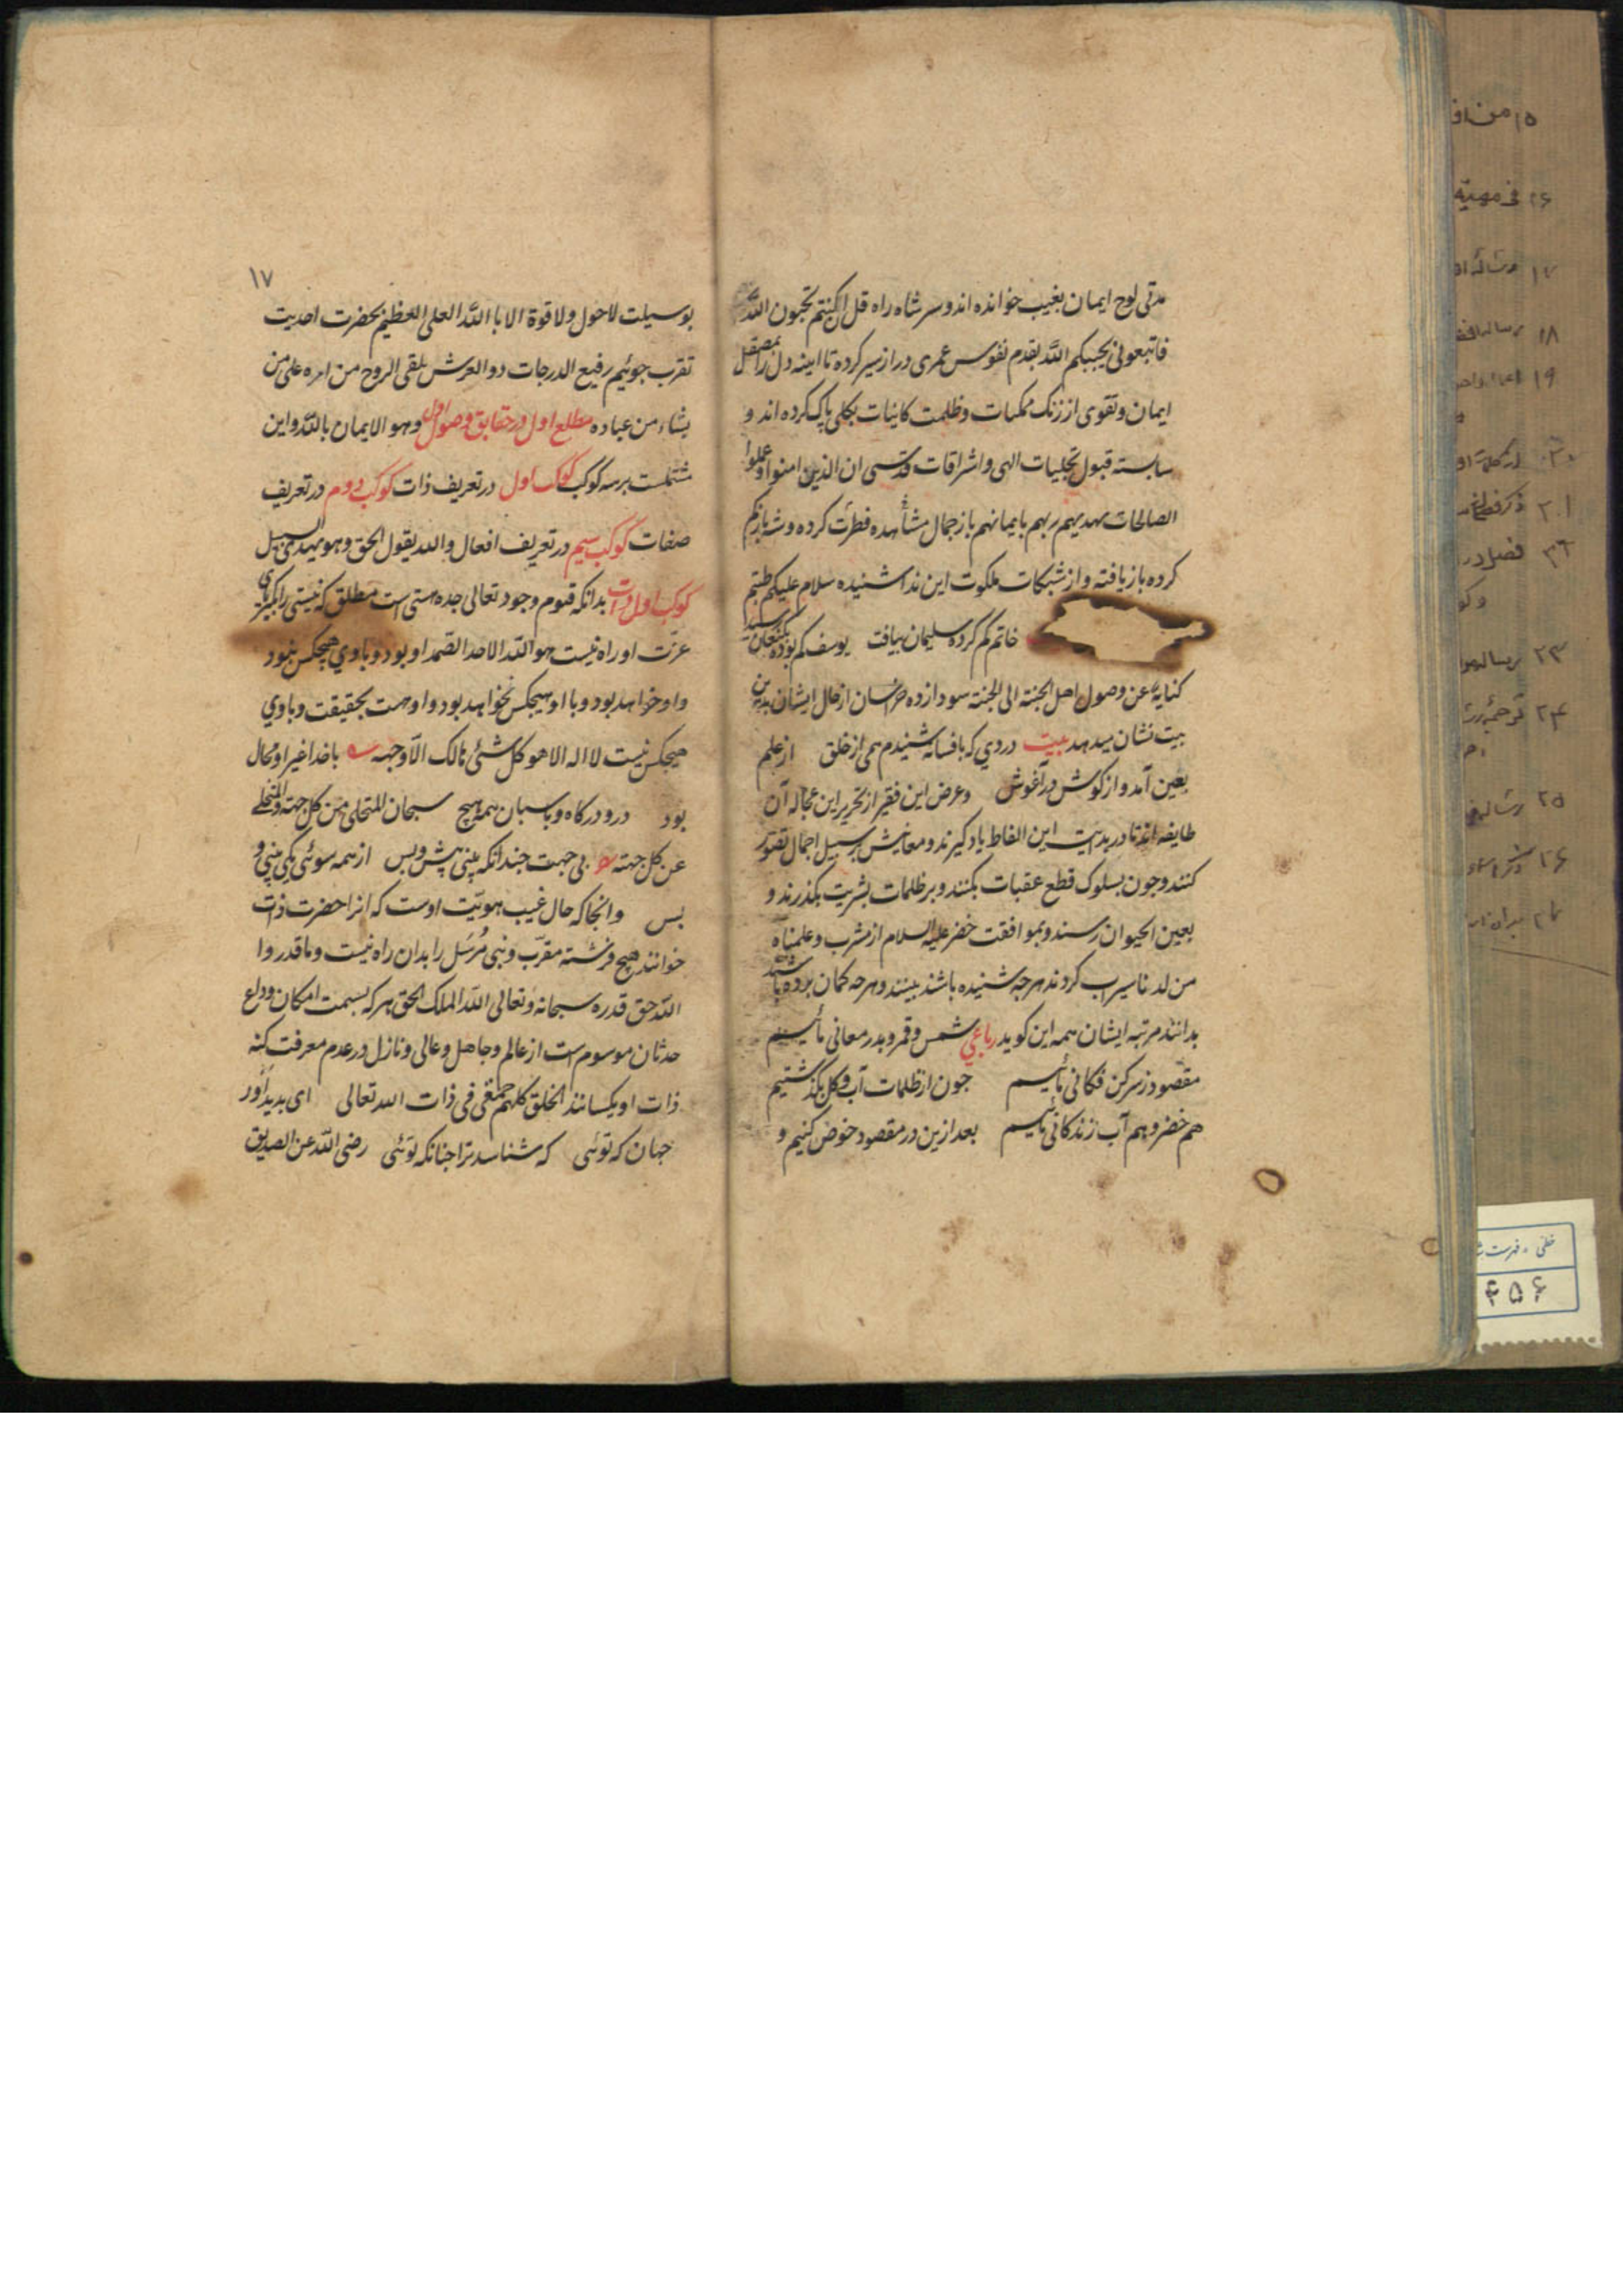 مدتی لوح ایمان بغیب خوانده اند و سر شاه راه قل ان کنتم تحبون الله
فاتبعونی یحببکم الله بقدم نفوس عمری دراز سیر کرده تا اینه دل را بمصقل
ایمان و تقوی از زنک ممکنات و ظلمت کاینات بکلی پاک کرده اند و
شایسته قبول تجلیات الهی و اشراقات قدسی ان الذین امنوا و عملوا
الصالحات یهدیهم ربهم بایمانهم باز جمال مشاهده فطرت کرده و شهباز کم
کرده باز یافته و از شبکات ملکوت این ندا شنیده سلام علیکم طبتم
خاتم کم کرده سلیمان بیافت یوسف کم بوده بکنعان رسید
کنایة عن وصول اهل الجنة الی الجنة سودازده خراسان از حال ایشان بدین
بیت نشان میدهد بیت دردی که بافسانه شنیدم همی از خلق از علم
بعین آمد و از کوش در آغوش و عرض این فقیر از تحریر این عجاله آن
طایفه اند تا در بدایت این الفاظ یاد کیرند و معانیش بر سبیل اجمال تصور
کنند و جون بسلوک قطع عقبات بکنند و بر ظلمات بشریت بکذرند و
بعین الحیوان رسند و بموافقت خضر علیه السلام از مشرب و علمناه
من لدنا سیراب کردند هرجه شنیده باشند ببینند و هرجه کمان برده باشند
بدانند مرتبه ایشان همه این کوید رباعی شمس و قمر و بدر معانی مائیم
مقصود ز سر کن فکانی مائیم جون از ظلمات آب و کل بکذشتیم
هم خضر و هم آب زندکانی مائیم بعد ازین در مقصود خوض کنیم و
۱۷
بوسیلت لاحول ولا قوة الا بالله العلی العظیم بحضرت احدیت
تقرب جوئیم رفیع الدرجات ذو العرش یلقی الروح من امره علی من
یشاء من عباده مطلع اول در حقایق وصول اول و هو الایمان بالله و این
مشتملست بر سه کوکب کوکب اول در تعریف ذات کوکب دوم در تعریف
صفات کوکب سیم در تعریف افعال والله یقول الحق و هو یهدی السبیل
کوکب اول در ذات بدانکه قیوم وجود تعالی جده هستی است مطلق که نیستی را بکبریای
عزت او راه نیست هو الله الاحد الصمد او بود و با وی هیجکس نبود
و او خواهد بود و با او هیجکس نخواهد بود و او هست بحقیقت و با وی
هیجکس نیست لا اله الا هو کل شئ هالک الا وجهه با خدا غیر او محال
بود در و درکاه و باسبان همه هیچ سبحان المتجلی من کل جهة و المتخلی
عن کل جهة بی جهت جندانکه بینی پیش و پس از همه سوئی یکی بینی و
بس و انجا که حال غیب هویت اوست که انرا حضرت ذات
خوانند هیچ فرشته مقرب و نبی مرسل را بدان راه نیست و ما قدروا
الله حق قدره سبحانه و تعالی الله الملک الحق هر که بسمت امکان و داع
حدثان موسوم است از عالم و جاهل و عالی و نازل در عدم معرفت کنه
ذات او یکسانند الخلق کلهم حمقی فی ذات الله تعالی ای بدیدآور
جهان که توئی که شناسد ترا جنانکه توئی رضی الله عن الصدیق
۱۸
۱۹
۲۳
۲۴
۲۵
۲۶
۴۵۶